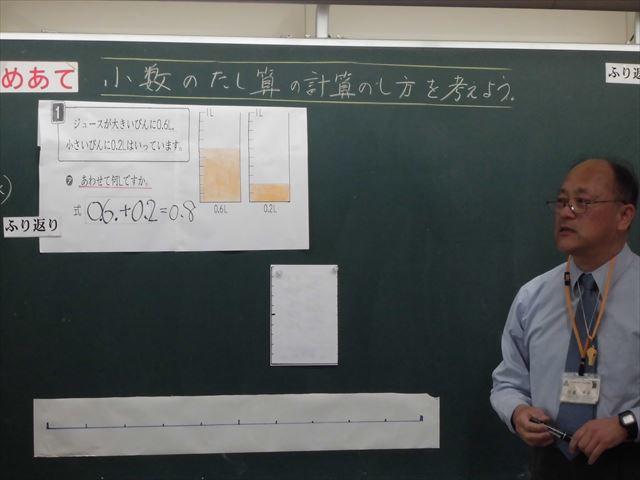 めあて
小数のたし算の計算のし方を考えよう。
ふり返
1
ジュースが大きいびんに0.6L、
小さいびんに0.2Lはいっています。
㋐ あわせて何Lですか。
式 0.6+0.2=0.8
1L
0.6L
1L
0.2L
ふり返り